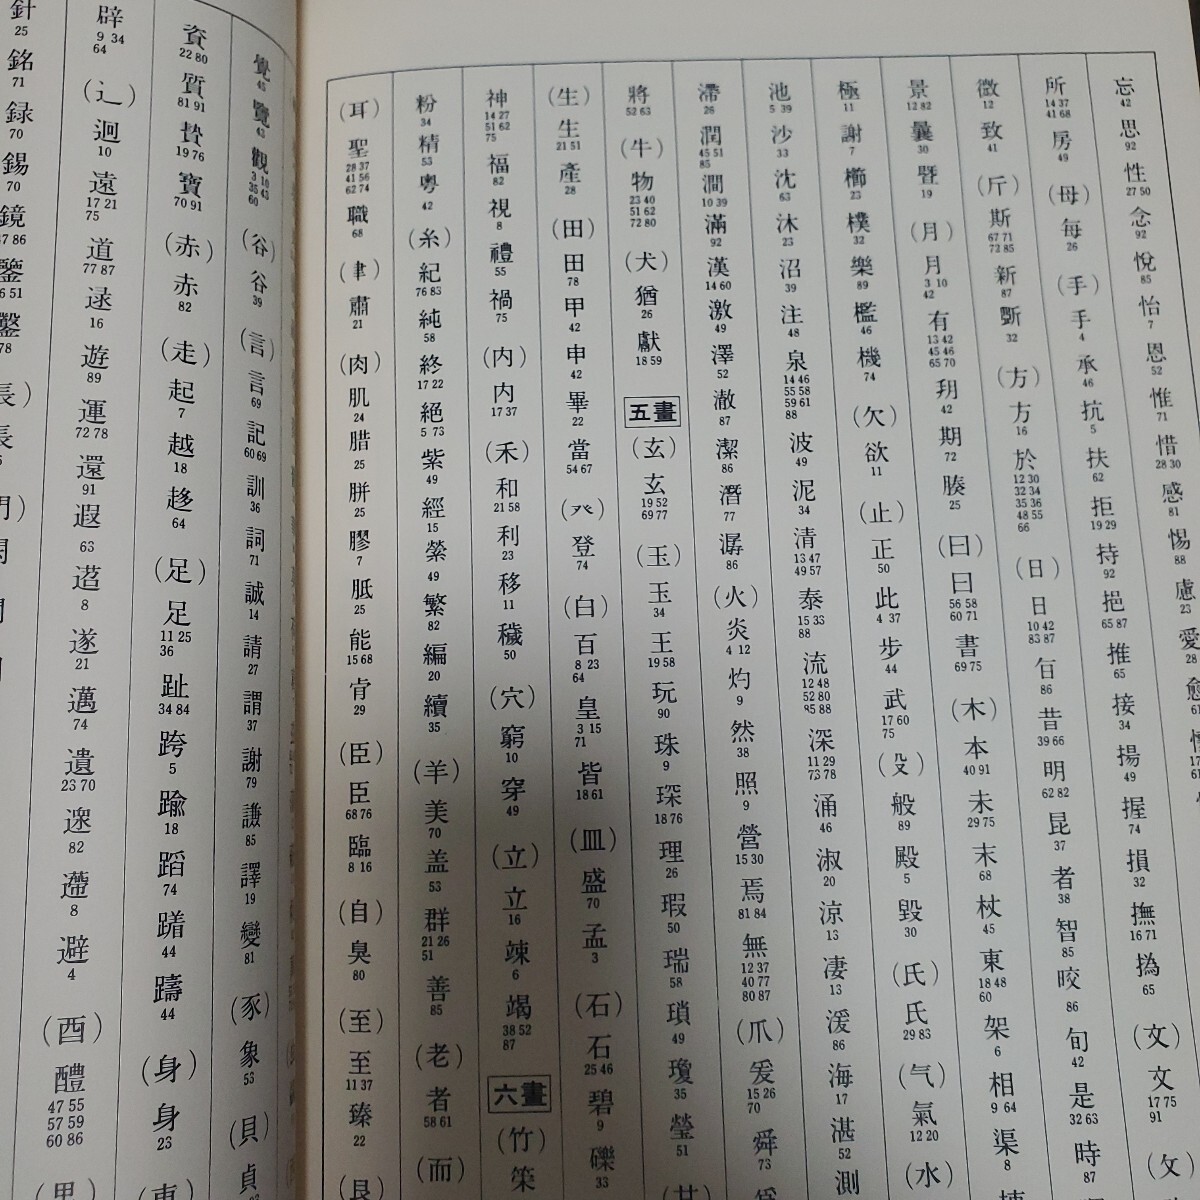 忘 42
思 92
性 27 50
念 92
悅 85
怡 7
恩 52
惟 71
惜 28 30
感 81
惕 88
慮 23
愛 28
所 14 37 41 68
房 49
(母)
每 26
(手)
手 4
承 46
抗 5
扶 62
拒 19 29
持 92
挹 65 87
推 65
接 34
揚 49
握 74
損 32
撫 16 71
撝 65
(文)
文 17 75 91
(攵)
徵 12
致 41
(斤)
斯 67 71 72 85
新 87
斲 32
(方)
方 16
於 12 30 32 34 35 36 48 55 66
(日)
日 10 42 83 87
旨 86
昔 39 66
明 62 82
昆 37
者 38
智 85
晈 86
旬 42
是 32 63
時 87
景 12 82
曩 30
曁 19
(月)
月 3 10 42
有 13 42 45 46 65 70
玥 42
期 72
腠 25
(曰)
曰 56 58 60 71
書 69 75
(木)
本 40 91
未 29 75
末 68
杖 45
東 18 48 60
架 6
相 9 64
渠 8
極 11
謝 7
櫛 23
樸 32
樂 89
檻 46
機 74
(欠)
欲 11
(止)
正 50
此 4 37
步 44
武 17 60 75
(殳)
般 89
殿 5
毀 30
(氏)
氏 29 83
(气)
氣 12 20
(水)
池 5 39
沙 33
沈 63
沐 23
沼 39
注 48
泉 14 46 55 58 59 61 88
波 49
泥 34
清 13 47 49 57
泰 15 33 88
流 12 48 52 80 85 88
深 11 29 73 78
涌 46
淑 20
涼 13
凄 13
湲 86
海 17
湛 52
測
滯 26
潤 45 51 85
澗 10 39
滿 92
漢 14 60
激 49
澤 52
澈 87
潔 86
潛 77
潺 86
(火)
炎 4 12
灼 9
然 38
照 9
營 15 30
焉 81 84
無 12 37 40 77 80 87
(爪)
爰 15 26 70
舜 73
將 52 63
(牛)
物 23 40 51 62 72 80
(犬)
猶 26
獻 18 59
五畫
(玄)
玄 19 52 69 77
(玉)
玉 34
王 19 58
玩 90
珠 9
琛 18 76
理 26
瑕 50
瑞 58
瑣 49
瓊 35
瑩 51
(生)
生 21 51
產 28
(田)
田 78
甲 42
申 42
畢 22
當 54 67
(癶)
登 74
(白)
百 8 23 64
皇 3 15 71
皆 18 61
(皿)
盛 70
孟 3
(石)
石 25 46
碧 9
礫 33
神 14 27 51 62 75
福 82
視 8
禮 55
禍 75
(内)
内 17 37
(禾)
和 21 58
利 23
移 11
穢 50
(穴)
窮 10
穿 49
(立)
立 16
竦 6
竭 38 52 87
六畫
(竹)
築
粉 34
精 53
粵 42
(糸)
紀 76 83
純 58
終 17 22
絕 5 73
紫 49
經 15
縈 49
繁 82
編 20
續 35
(羊)
美 70
盖 53
群 21 26 51
善 85
(老)
者 58 61
(而)
(耳)
聖 28 37 41 56 62 74
職 68
(聿)
肅 21
(肉)
肌 24
腊 25
胼 25
膠 7
胝 25
能 15 68
肯 29
(臣)
臣 68 76
臨 8 16
(自)
臭 80
(至)
至 11 37
臻 22
(艮)
覺 45
覽 43
觀 3 10 35 43 60
(谷)
谷 39
(言)
言 69
記 60 69
訓 36
詞 71
誠 14
請 27
謂 37
謝 79
謙 85
譯 19
變 81
(豕)
象 53
(貝)
貞
資 22 80
質 81 91
贄 19 76
寶 70 91
(赤)
赤 82
(走)
起 7
越 18
趍 64
(足)
足 11 25 36
趾 34 84
跨 5
踰 18
蹈 74
蹐 44
躊 44
(身)
身 23
(車)
辟 9 34 64
(辶)
迴 10
遠 17 21 75
道 77 87
逯 16
遊 89
運 72 78
還 91
遐 63
迢 8
遂 21
邁 74
遺 23 70
遝 82
遰 8
避 4
(酉)
醴 47 55 57 59 60 86
(里)
針 25
銘 71
録 70
錫 70
鏡
鑒
鑿